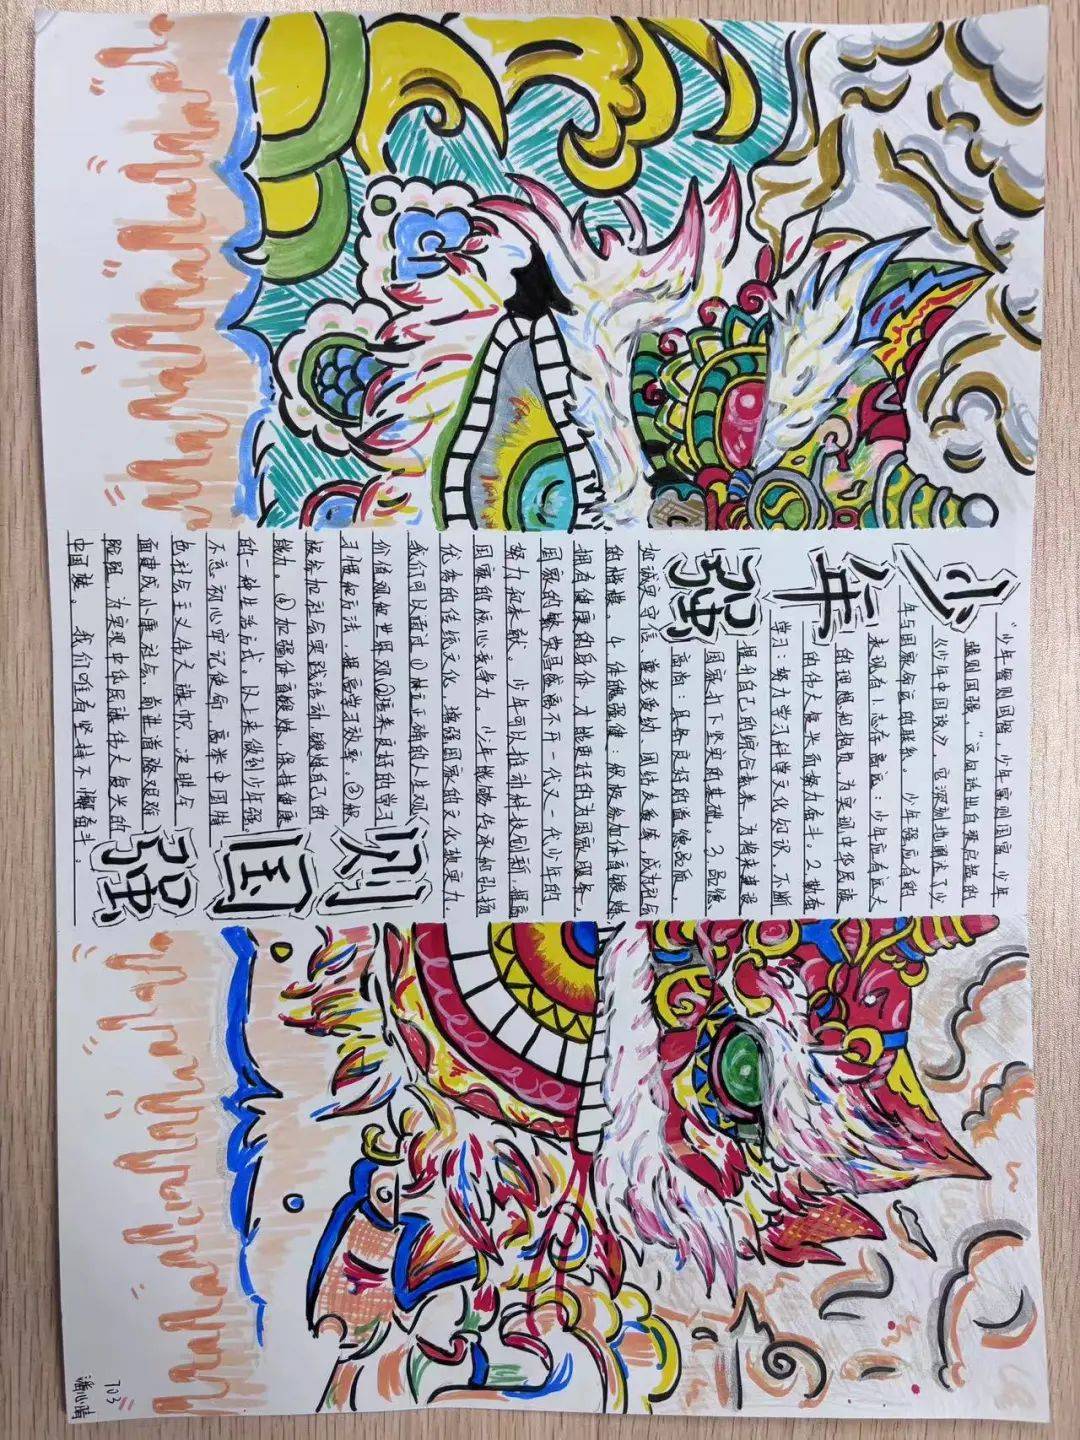 少年强
"少年智则国智，少年富则国富，少年
强则国强。"这句话出自梁启超的
《少年中国说》它深刻地阐述了少
年与国家命运的联系。少年强应有的
表现有1.志存高远：少年应有远大
的理想和抱负，为实现中华民族
的伟大复兴而努力奋斗。2.勤奋
学习：努力学习科学文化知识，不断
提升自己的综合素养，为将来建设
国家打下坚实的基础。3.品德
高尚：具备良好的道德品质，
如诚实守信、尊老爱幼、团结友善等，成为社会
的楷模。4.体魄强健：积极参加体育锻炼，
拥有健康的身体，才能更好的为国家服务，
国家的繁荣昌盛离不开一代又一代少年的
努力和奉献。少年可以推动科技创新，提高
国家的核心竞争力。少年能够传承和弘扬
优秀的传统文化，增强国家的文化软实力。
我们可以通过①树立正确的人生观、
价值观和世界观②培养良好的学习
习惯和方法，提高学习效率。③积
极参加社会实践活动，锻炼自己的
能力。④加强体育锻炼，保持健康
的一种生活方式。以上来做到少年强。
不忘初心牢记使命，高举中国特
色社会主义伟大旗帜，决胜全
面建成小康社会，前进道路艰难
险阻，为实现中华民族伟大复兴的
中国梦，我们唯有坚持不懈奋斗。
则国强
703
潘心晴